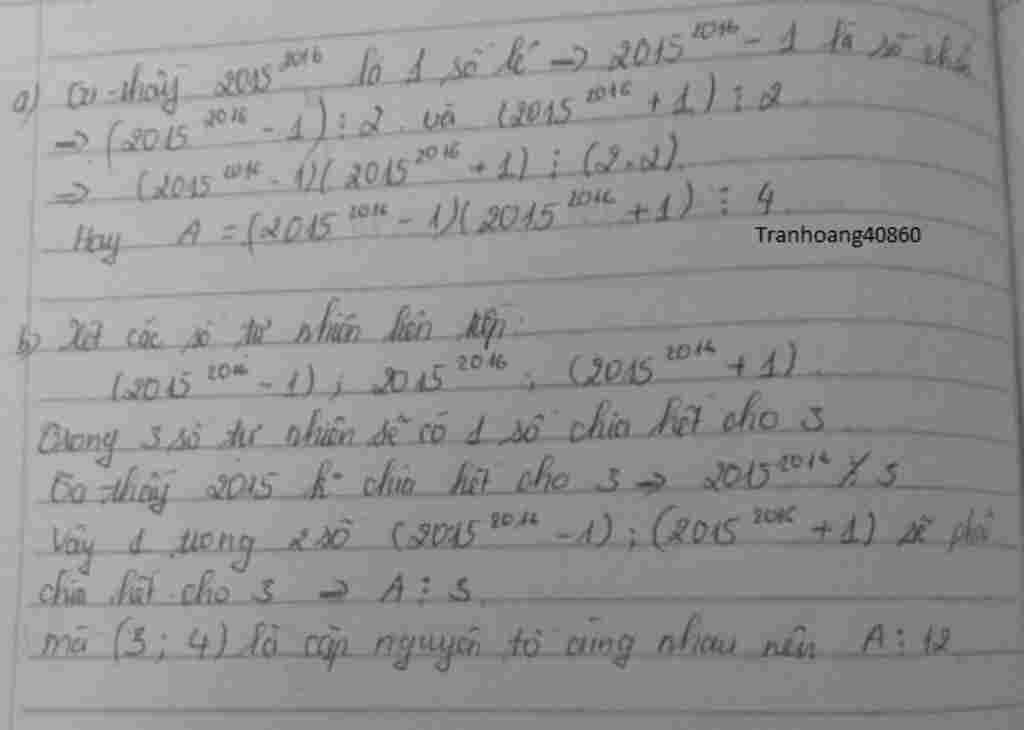 a) Ta thấy 2015^2016 là 1 số lẻ → 2015^2016 - 1 là số chẵn
→ (2015^2016 - 1) ⋮ 2 và (2015^2016 + 1) ⋮ 2
⇒ (2015^2016 - 1)(2015^2016 + 1) ⋮ (2.2)
Hay A = (2015^2016 - 1)(2015^2016 + 1) ⋮ 4
Tranhoang40860
b) Xét các số tự nhiên liên tiếp:
(2015^2016 - 1); 2015^2016; (2015^2016 + 1).
Trong 3 số tự nhiên sẽ có 1 số chia hết cho 3
Ta thấy 2015 k° chia hết cho 3 → 2015^2016 ⋮̸ 3
Vậy 1 trong 2 số (2015^2016 - 1); (2015^2016 + 1) sẽ phải
chia hết cho 3 → A ⋮ 3.
mà (3; 4) là cặp nguyên tố cùng nhau nên A ⋮ 12